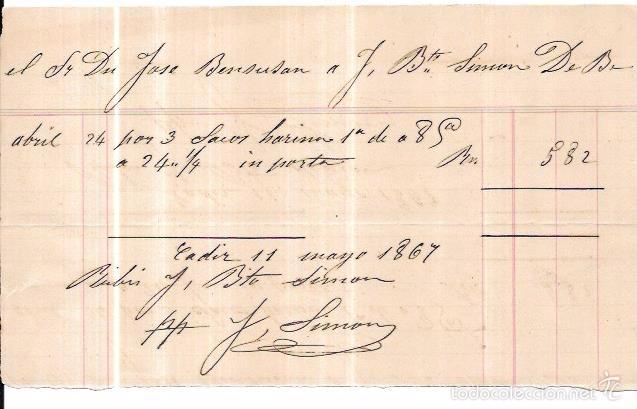 el Sr Dn Jose Bensusan a J, Bta Simon De Be
abril 24 por 3 Sacos harina 1a de a 8 @
a 24 1/4 inporta Rn 582
Cadiz 11 mayo 1867
Rebibi J, Bto Simon
pp J, Simon
todocoleccion.net